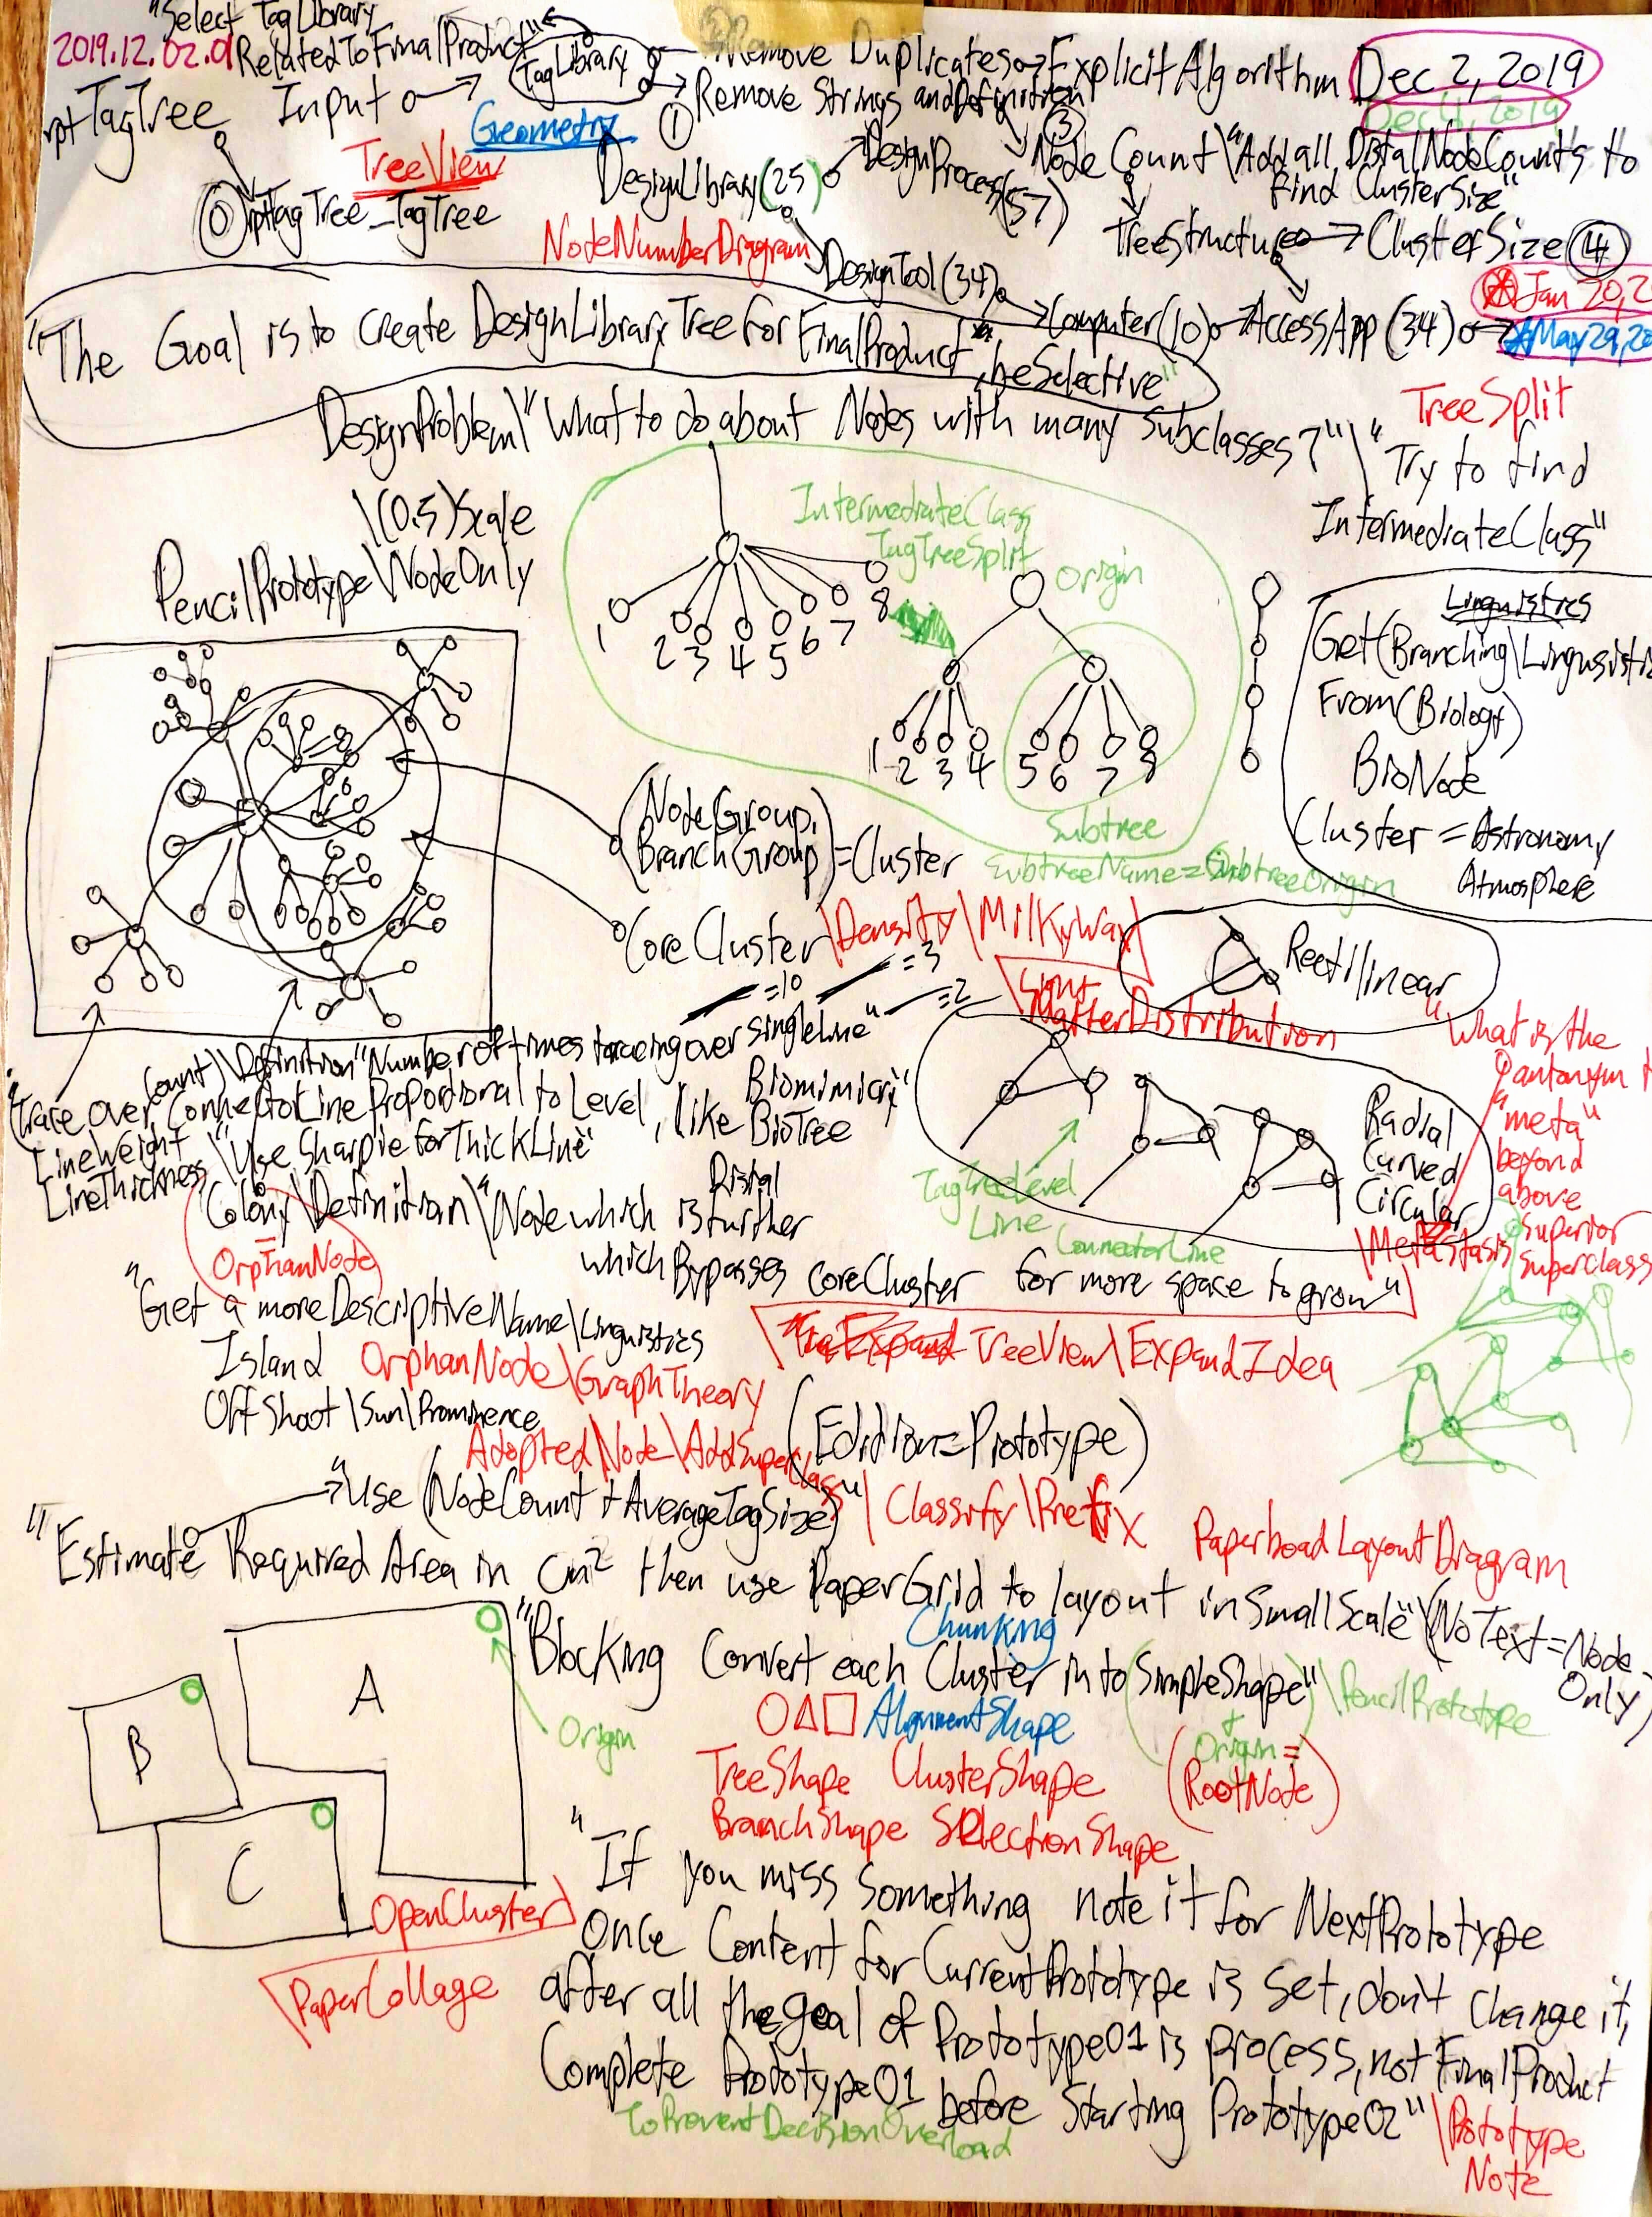 "Select TagLibrary
2019.12.02.01 RelatedToFinalProduct"
TagLibrary
Remove Duplicates → ExplicitAlgorithm
Dec 2, 2019
Dec 4, 2019
rptTagTree
Input
① Remove Strings and Definition
Geometry
TreeView
⓪ rptTagTree_TagTree
DesignLibrary(25)
DesignProcess(57)
③
NodeCount\"Add all DistalNodeCounts to
find ClusterSize"
TreeStructure → ClusterSize ④
NodeNumberDiagram
DesignTool(34)
Computer(10) → AccessApp(34)
Jan 20, 2
May 29, 20
"The Goal is to create DesignLibraryTree for FinalProduct, beSelective"
DesignProblem\"What to do about Nodes with many Subclasses?"\"Try to find
IntermediateClass"
TreeSplit
\(0.5)Scale
PencilPrototype\NodeOnly
IntermediateClass
TagTreeSplit
Origin
1 2 3 4 5 6 7 8
1 2 3 4 5 6 7 8
Subtree
SubtreeName=SubtreeOrigin
Linguistics
Get(Branching\Linguistic
From(Biology)
BioNode
Cluster = Astronomy
Atmosphere
(NodeGroup,
BranchGroup)=Cluster
CoreCluster\Density\MilkyWay
MatterDistribution
=10 =3 =2
Rectilinear
Radial
Curved
Circular
TagTreeLevel
Line
ConnectorLine
"What is the
antonym
"meta"
beyond
above
superior
superclass
\Metastasis
Count)\Definition"Number of times traceing over singleLine"
"(Trace over ConnectorLine Proportional to Level, like BioTree
Biomimicry
LineWeight
LineThickness
\"Use Sharpie for ThickLine"
Colony\Definition\"Node which is further
Distal
which Bypasses CoreCluster for more space to grow"
= OrphanNode
"Get a moreDescriptiveName\Linguistics
Island OrphanNode\GraphTheory
TreeView\ExpandIdea
OffShoot\Sun\Prominence
AdoptedNode\AddSuperclass
(Edition=Prototype)
"Use (NodeCount + AverageTagSize)"\Classify\Prefix
PaperboadLayoutDiagram
"Estimate Required Area in cm² then use PaperGrid to layout inSmallScale"\(NoText=Node
Only)
"Blocking Convert each Cluster into SimpleShape"\PencilPrototype
Chunking
AlignmentShape
+
Origin =
(RootNode)
TreeShape ClusterShape
BranchShape SelectionShape
Origin
A
B
C
OpenCluster
\PaperCollage
"If you miss something note it for NextPrototype
Once Content for CurrentPrototype is set, don't change it,
after all the goal of Prototype01 is process, not FinalProduct
Complete Prototype01 before Starting Prototype02"\Prototype
Note
ToPreventDecisionOverload